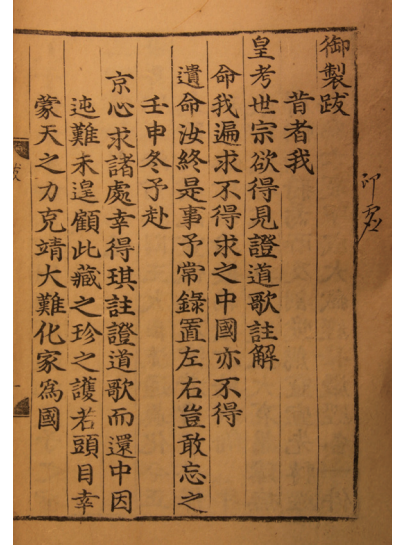 御製跋
昔者我
皇考世宗欲得見證道歌註解
命我遍求不得求之中國亦不得
遺命汝終是事予常錄置左右豈敢忘之
壬申冬予赴
京心求諸處幸得琪註證道歌而還中因
迍難未遑顧此藏之珍之護若頭目幸
蒙天之力克靖大難化家爲國
跋